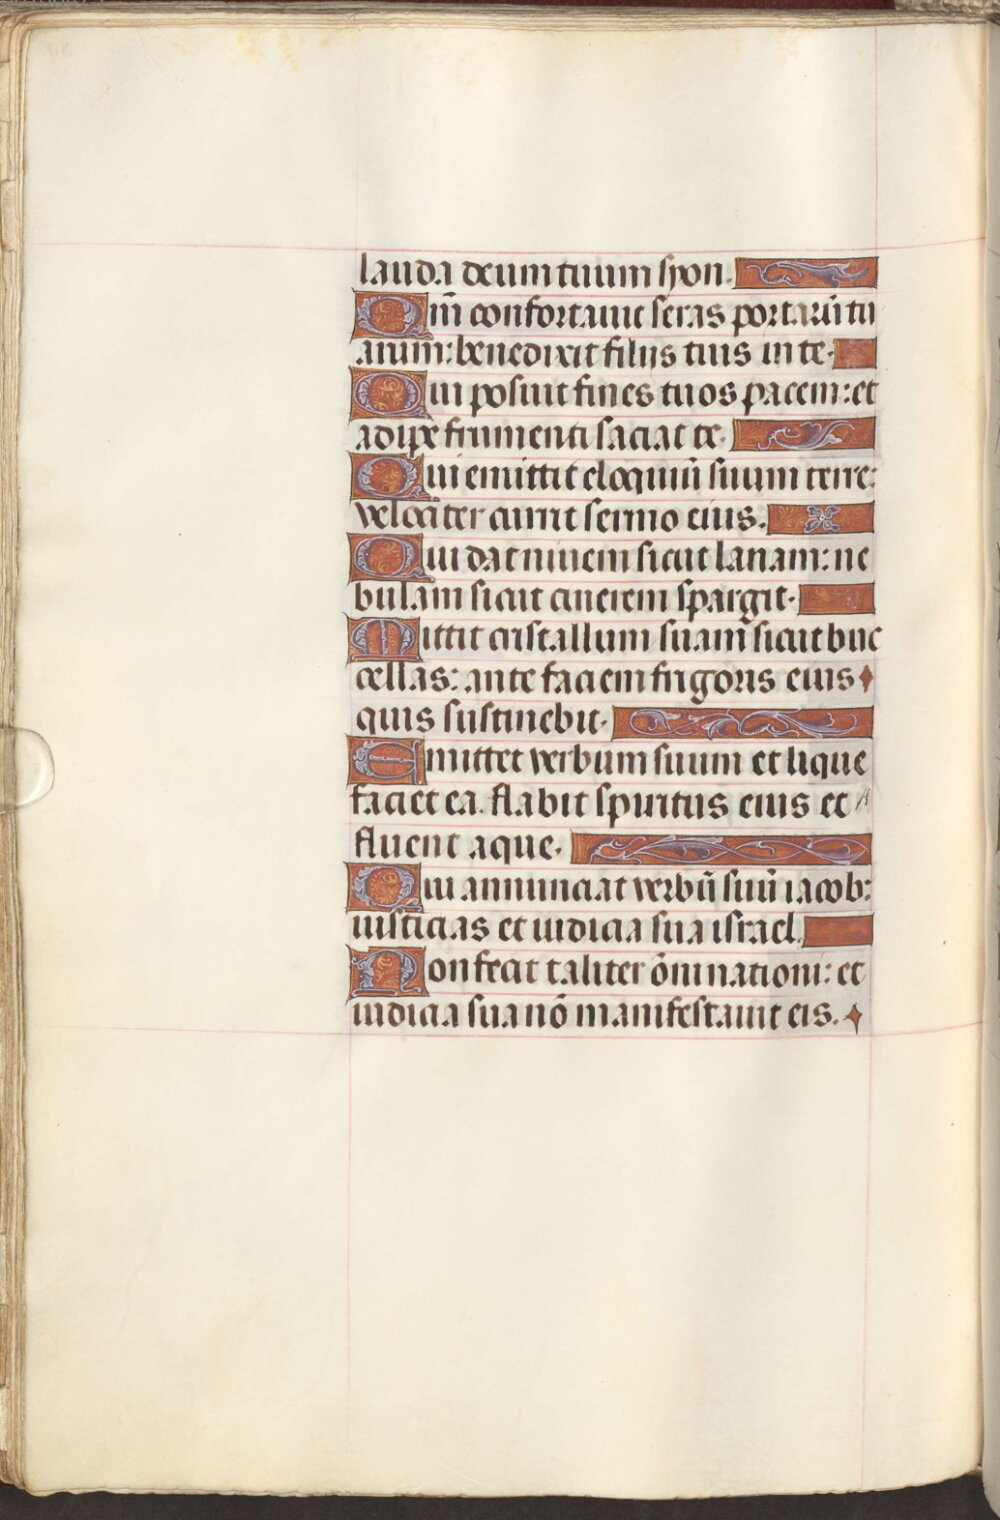 lauda deum tuum syon.
Qm̄ confortauit seras portarū tu
arum: benedixit filijs tuis in te.
Qui posuit fines tuos pacem: et
adipe frumenti saciat te.
Qui emittit eloquiū suum terre:
velociter currit sermo eius.
Qui dat niuem sicut lanam: ne
bulam sicut cinerem spargit.
Mittit cristallum suam sicut buc
cellas: ante faciem frigoris eius
quis sustinebit.
Emittet verbum suum et lique
faciet ea. flabit spiritus eius et
fluent aque.
Qui annunciat verbū suū iacob:
iusticias et iudicia sua israel.
Non fecit taliter ōni nationi: et
iudicia sua nō manifestauit eis.